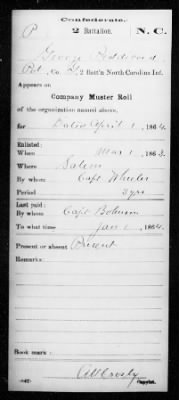 Confederate.
P 2 Battalion. N.C.
George
Pvt, Co. G, 2 Batt'n North Carolina Inf.
Appears on
Company Muster Roll
of the organization named above,
for Dated April 1, 1864.
Enlisted:
When Mar 1, 1863.
Where Salem
By whom Capt. Wheeler
Period 3 yrs
Last paid:
By whom Capt.
To what time Jan 1, 1864.
Present or absent Present
Remarks:
Book mark:
(642) Copyist.